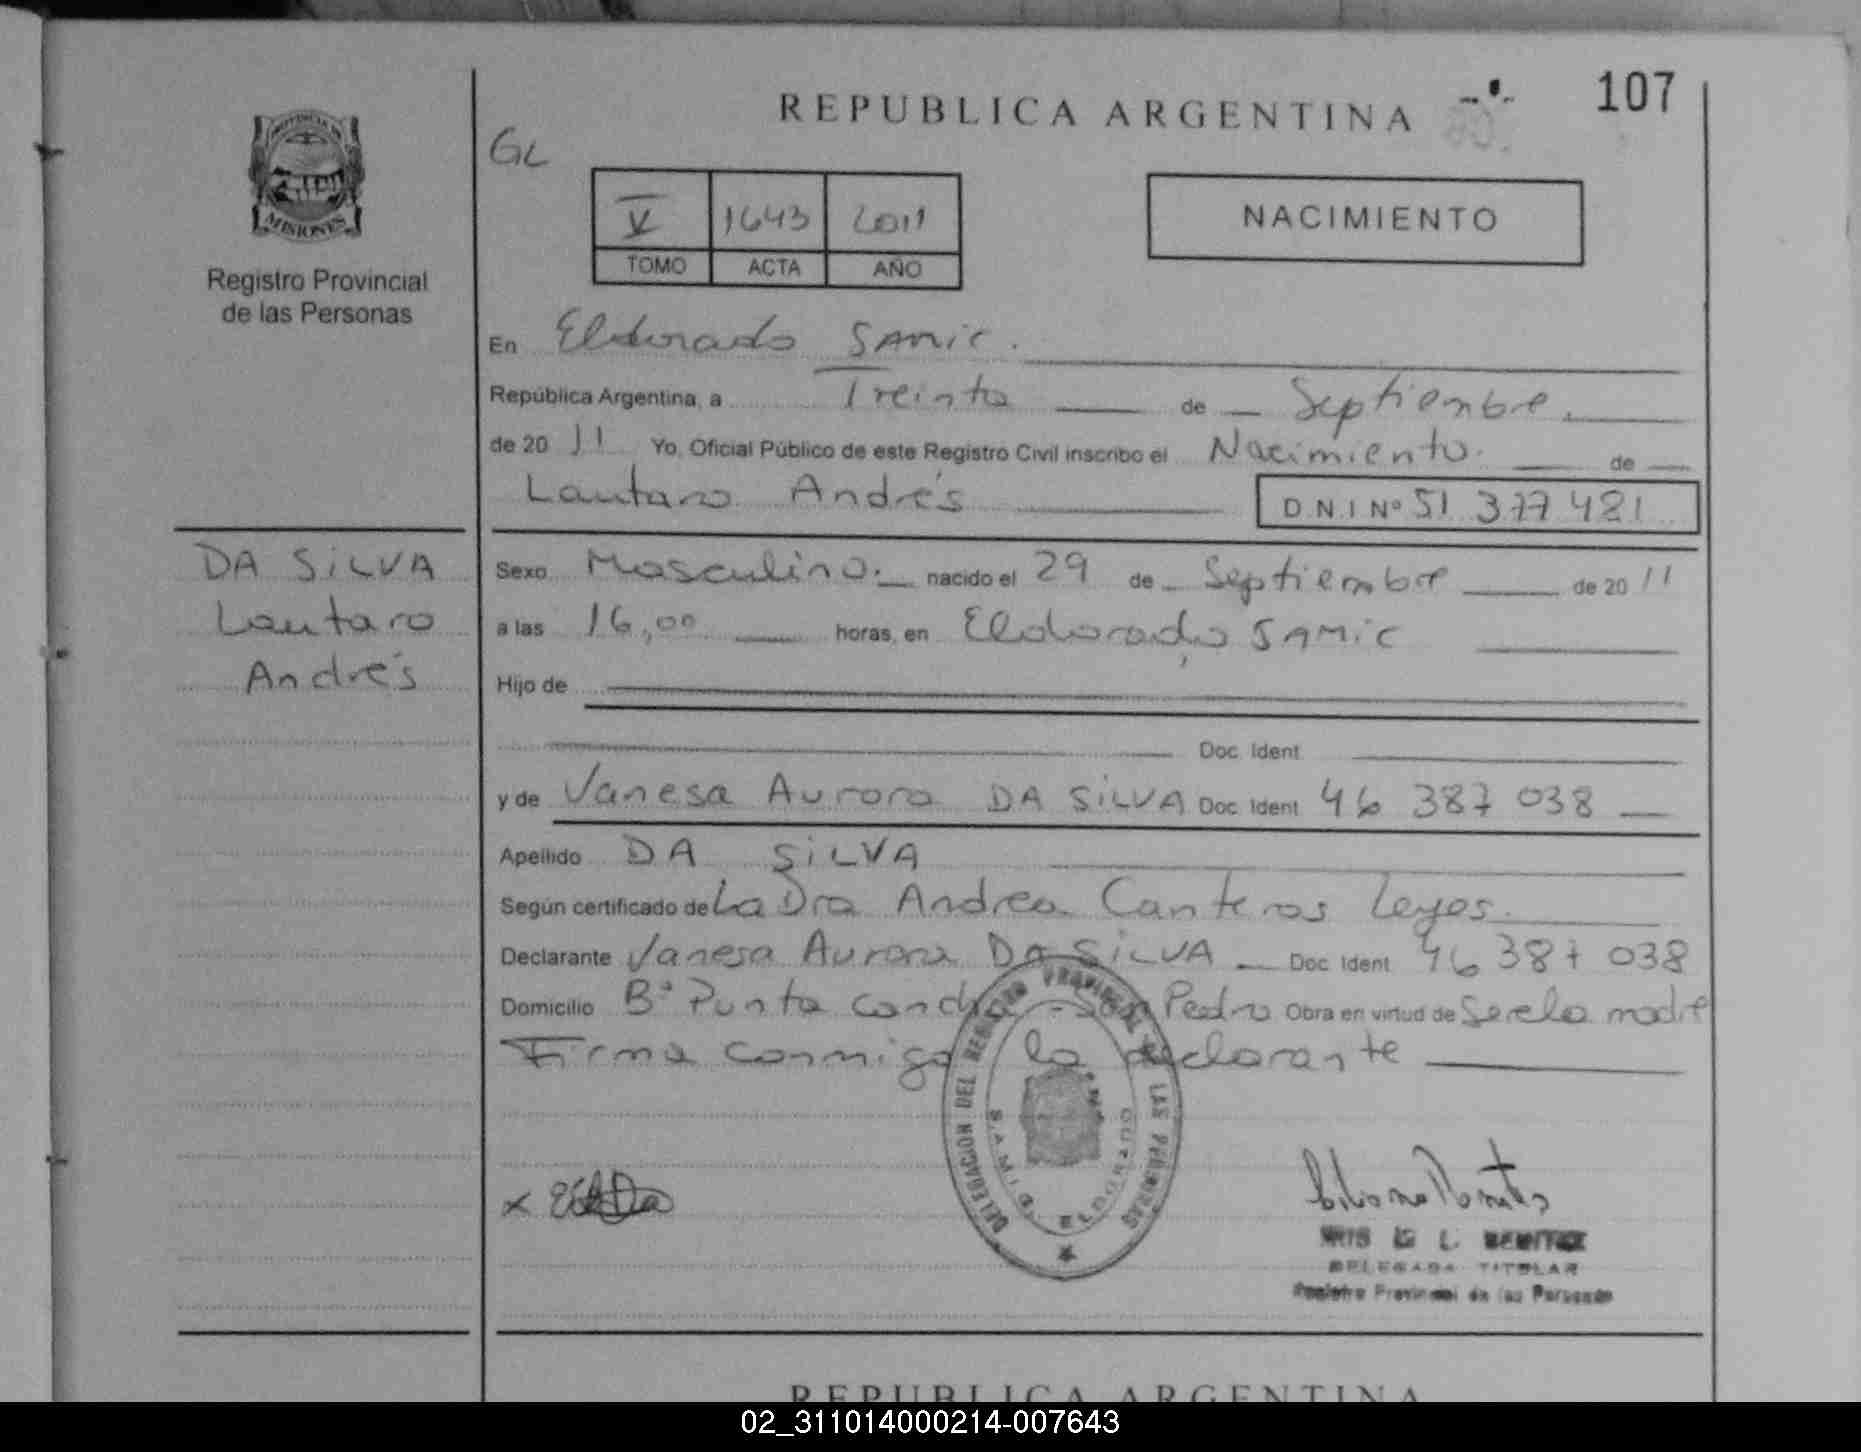 107
REPUBLICA ARGENTINA
GL
V 1643 2011
TOMO ACTA AÑO
NACIMIENTO
PROVINCIA DE
MISIONES
Registro Provincial
de las Personas
En Eldorado SAMIC.
República Argentina, a Treinta de Septiembre.
de 20 11 Yo, Oficial Público de este Registro Civil inscribo el Nacimiento. de
Lautaro Andrés D.N.I Nº 51 377 481
DA SILVA
Lautaro
Andrés
Sexo Masculino. nacido el 29 de Septiembre de 20 11
a las 16,00 horas, en Eldorado, SAMIC
Hijo de
Doc. Ident.
y de Vanesa Aurora DA SILVA Doc. Ident. 46 387 038
Apellido DA SILVA
Según certificado de La Dra Andrea Canteros Leyes.
Declarante Vanesa Aurora DA SILVA Doc. Ident. 46 387 038
Domicilio Bº Punta - San Pedro Obra en virtud de Ser la madre
Firma conmigo la declarante
DELEGACION DEL REGISTRO PROVINCIAL DE LAS PERSONAS
S.A.M.I.C. ELDORADO
x
L. BENITEZ
DELEGADA TITULAR
Registro Provincial de las Personas
REPUBLICA ARGENTINA
02_311014000214-007643